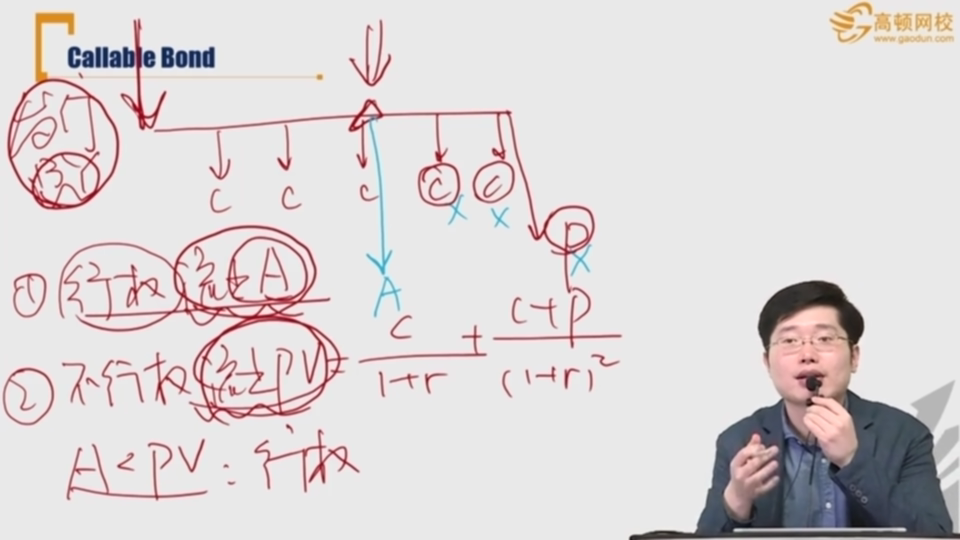 Callable Bond
高顿网校
www.gaodun.com
C C C C C
P
A
① 行权 流出 A
② 不行权 流出 PV = C/1+r + C+P/(1+r)²
A < PV : 行权